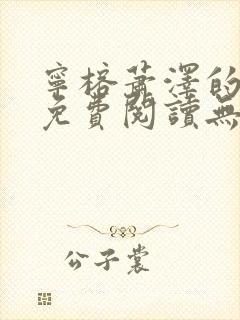 寧榕蕭澤的
免費閱讀無
公子裳